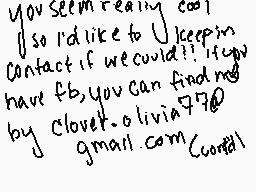 you seem really cool
so i'd like to keep in
contact if we could!! if you
have fb, you can find me
by clover.olivia77@
gmail.com (cont'd)